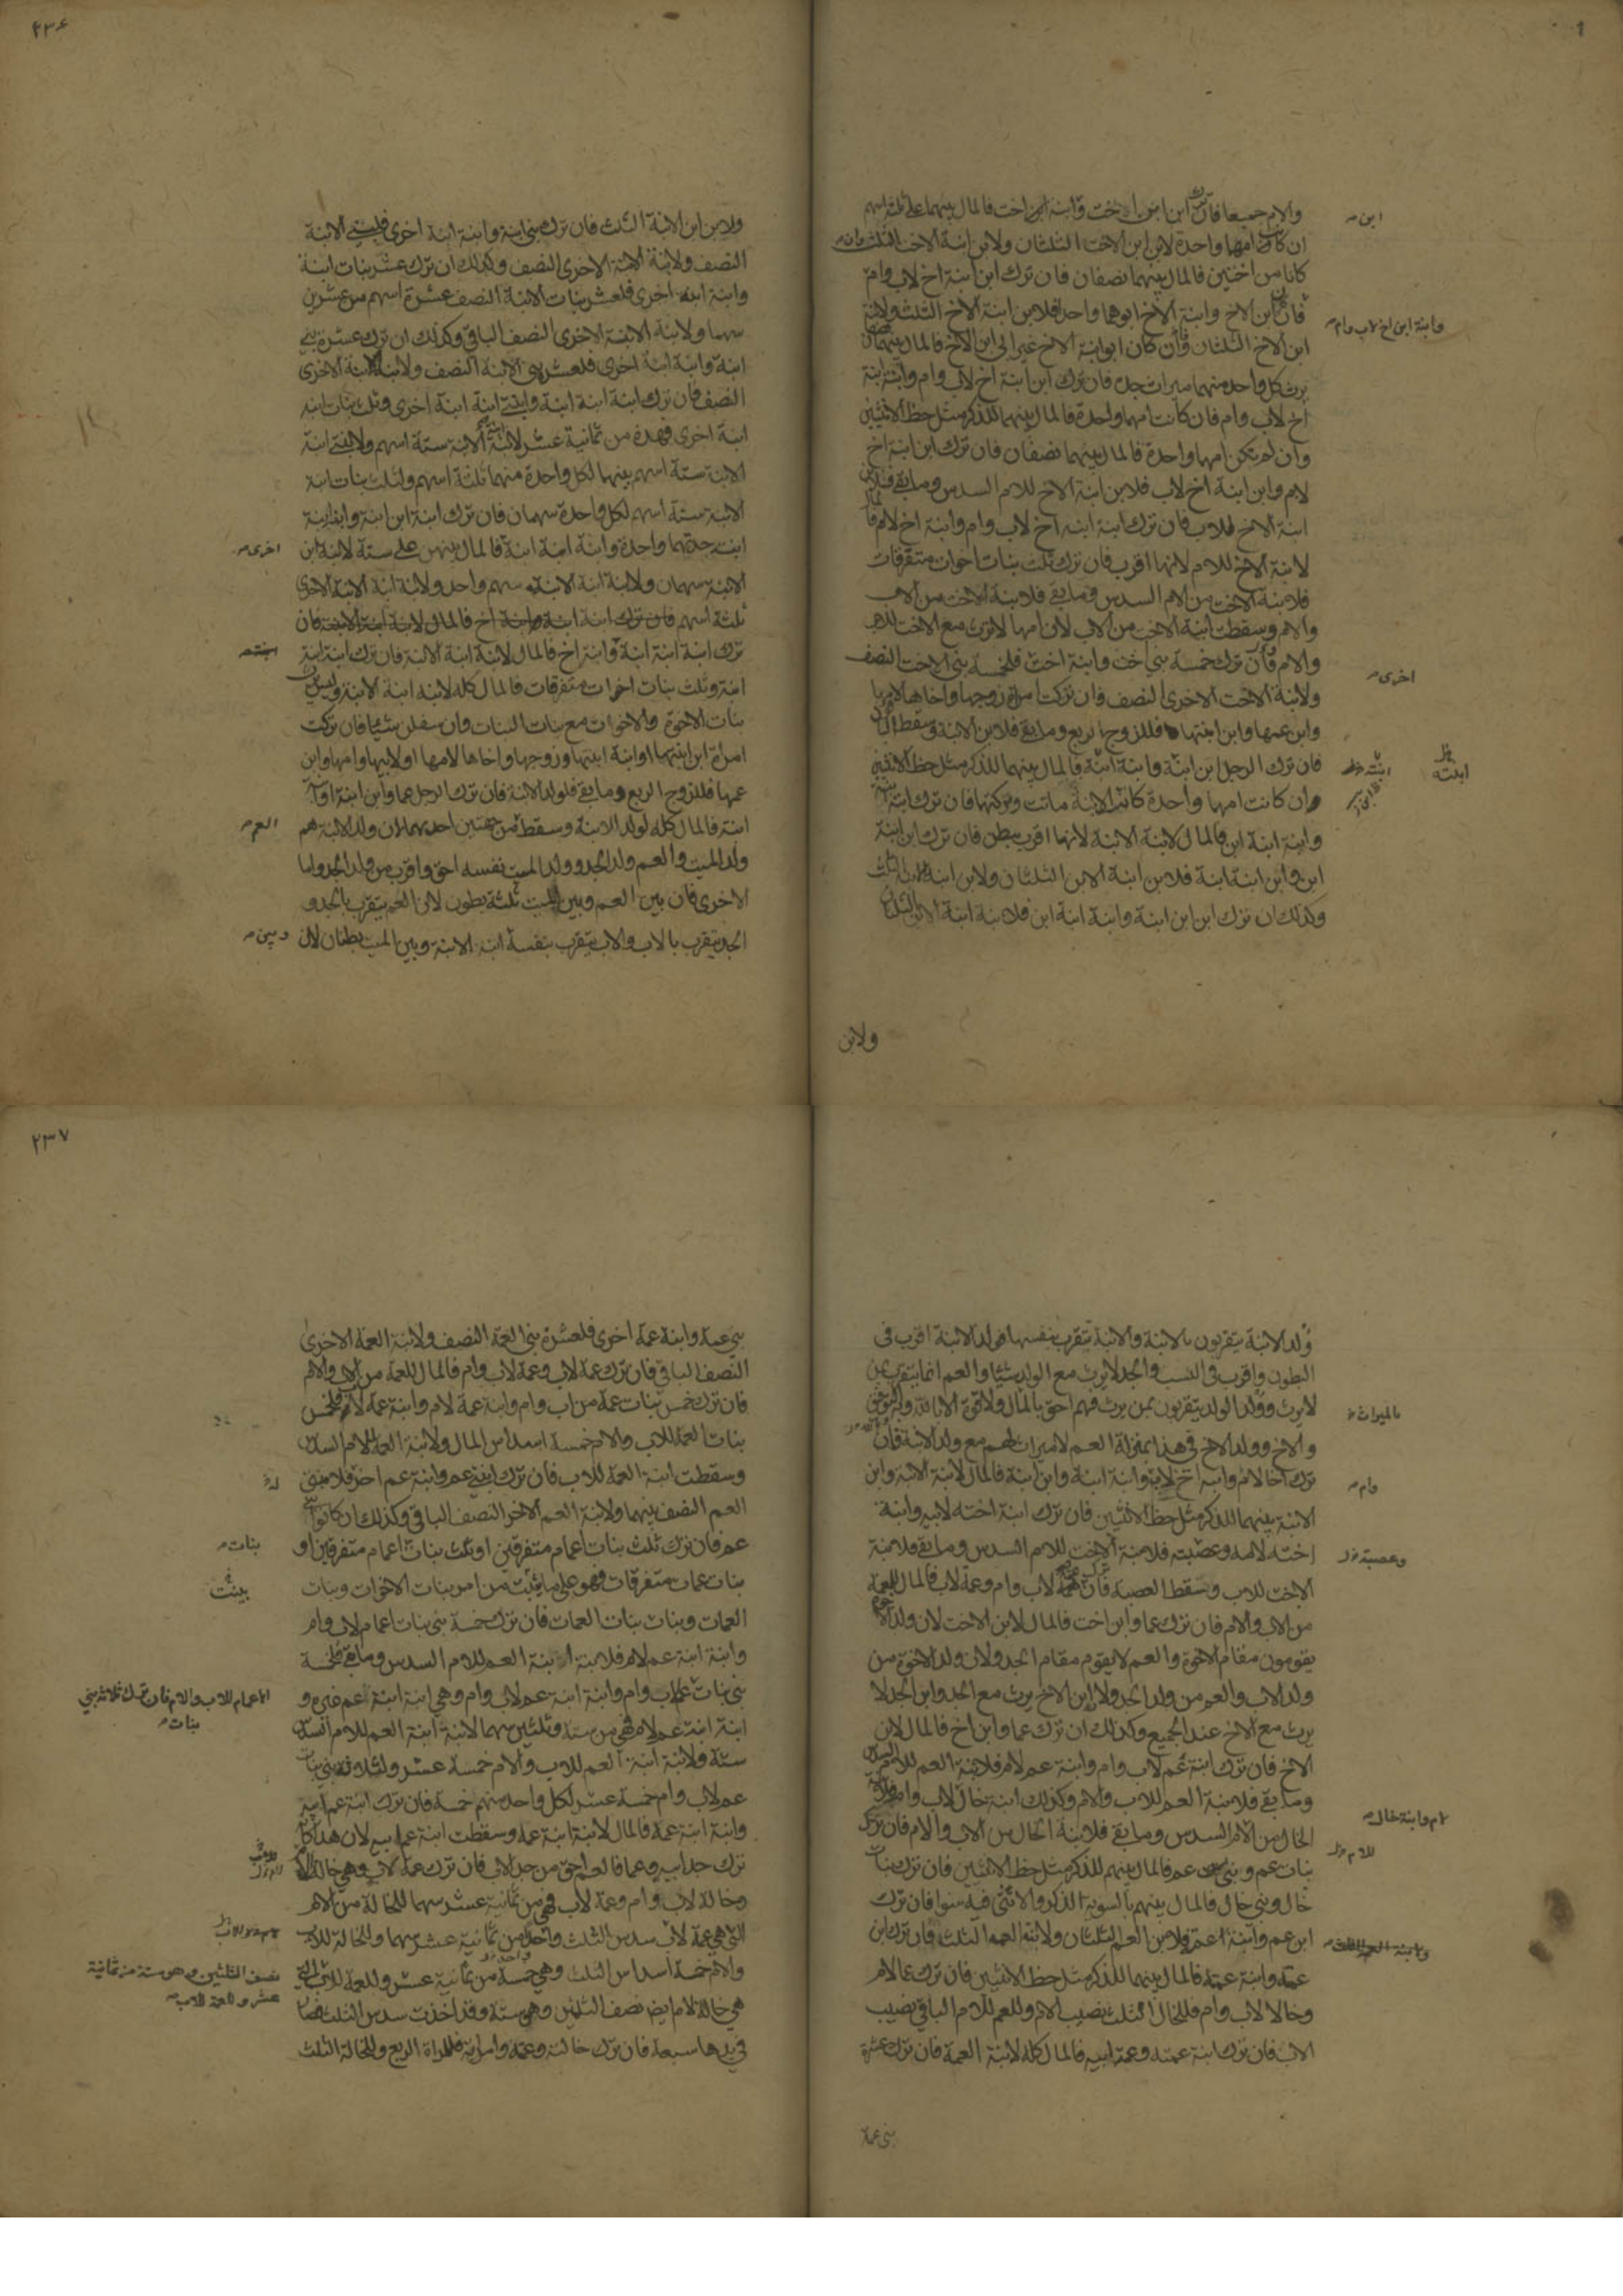 والام جميعا فان ترك ابن ابن اخت وابنة ابن اخت فالمال بينهما على ثلثة اسهم
ابن
ان كانت امهما واحدة لابن ابن الاخت الثلثان ولابن ابنة الاخت الثلث وان
كانا من اختين فالمال بينهما نصفان فان ترك ابن ابنة اخ لاب وام
وابنة ابن اخ لاب وام
فان كان ابن الاخ وابنة الاخ ابوهما واحد فلابن ابنة الاخ الثلث ولابنة
ابن الاخ الثلثان وان كان ابو ابنة الاخ غير ابى ابن الاخ فالمال بينهما نصفان
يرث كل واحد منهما ميراث جده فان ترك ابن ابنة اخ لاب وام وابنة ابنة
اخ لاب وام فان كانت امهما واحدة فالمال بينهما للذكر مثل حظ الانثيين
وان لم تكن امهما واحدة فالمال بينهما نصفان فان ترك ابن ابنة اخ
لام وابن ابنة اخ لاب فلابن ابنة الاخ للام السدس وما بقي فلابن
ابنة الاخ للاب فان ترك ابنة ابنة اخ لاب وام وابنة اخ لام فالمال
لابنة الاخ للام لانها اقرب فان ترك ثلث بنات اخوات متفرقات
فلابنة الاخت من الام السدس وما بقي فلابنة الاخت من الاب
والام وسقطت ابنة الاخت من الاب لان امها لا ترث مع الاخت للاب
والام فان ترك خمسة بني اخت وابنة اخت فلخمسة بني الاخت النصف
اخرى
ولابنة الاخت الاخرى النصف فان تركت امراة زوجها واخاها لامها
وابن عمها وابن ابنتها فللزوج الربع وما بقي فلابن الابنة وسقط الباقون
فان ترك الرجل ابن ابنة وابنة ابنة فالمال بينهما للذكر مثل حظ الانثيين
وان كانت امهما واحدة كانت الابنة ماتت وتركتهما فان ترك ابنة ابنة
وابنة ابنة ابن فالمال لابنة الابنة لانها اقرب ببطن فان ترك ابن ابنة
ابن وابن ابنة ابنة فلابن ابنة الابن الثلثان ولابن ابنة الابنة الثلث
وكذلك ان ترك ابن ابن ابنة وابنة ابنة ابن فلابنة ابنة الابن الثلثان
ولابن
٢٣٦
ولابن ابن الابنة الثلث فان ترك بني ابنة وابنة ابنة اخرى فلبني الابنة
النصف ولابنة الابنة الاخرى النصف وكذلك ان ترك عشر بنات ابنة
وابنة ابنة اخرى فلعشر بنات الابنة النصف عشرة اسهم من عشرين
سهما ولابنة الابنة الاخرى النصف الباقي وكذلك ان ترك عشرة بني
ابنة وابنة ابنة اخرى فلعشرة بني الابنة النصف ولابنة الابنة الاخرى
النصف فان ترك ابنة ابنة ابنة وابنتي ابنة ابنة اخرى وثلث بنات ابنة
ابنة اخرى فهذه من ثمانية عشر لابنة ابنة الابنة ستة اسهم ولابنتي ابنة
الابنة ستة اسهم بينهما لكل واحدة منهما ثلثة اسهم ولثلث بنات ابنة
الابنة ستة اسهم لكل واحدة سهمان فان ترك ابنة ابن ابنة وابنة ابنة
ابنة جدتهما واحدة وابنة ابنة ابنة فالمال بينهن على ستة لابنة ابن
اخرى
الابنة سهمان ولابنة ابنة الابنة سهم واحد ولابنة ابنة الابنة الاخرى
ثلثة اسهم فان ترك ابنة ابنة وابنة اخ فالمال لابنة ابنة الابنة فان
ترك ابنة ابنة ابنة وابنة اخ فالمال لابنة ابنة الابنة فان ترك ابنة ابنة
ابنة وثلث بنات اخوات متفرقات فالمال كله لابنة ابنة الابنة وليس
بنات الاخوة والاخوات مع بنات البنات وان سفلن شيئا فان تركت
امراة ابن ابنتها او ابنة ابنتها وزوجها واخاها لامها او لابيها وامها وابن
عمها فللزوج الربع وما بقي فلولد الابنة فان ترك الرجل عما وابن ابنة او
ابنة فالمال كله لولد الابنة وسقط من جهتين احدهما لان ولد الابنة هم
العم
ولد الميت والعم ولد الجد وولد الميت نفسه احق واقرب من ولد الجد واما
الاخرى فان بين العم وبين الميت ثلثة بطون لان العم يتقرب بالجد و
الجد يتقرب بالاب والاب يتقرب بنفسه ابنة الابنة وبين الميت بطنان لان
وبين
ولد الابنة يتقربون بالابنة والابنة تتقرب بنفسها فولد الابنة اقرب في
البطون واقرب في النسب والجد لا يرث مع الولد شيئا والعم انما يتقرب بمن
لا يرث وولد الولد يتقربون بمن يرث فهم احق بالمال ولا قوة الا بالله
بالميراث
والاخ وولد الاخ في هذا بمنزلة العم لا ميراث لهم مع ولد الابنة فان
ترك اخا لام وابنة اخ لاب وابنة ابنة وابن ابنة فالمال لابنة الابنة وابن
وام
الابنة بينهما للذكر مثل حظ الانثيين فان ترك ابنة اخته لابيه وابنة
اخته لامه وعصبته فلابنة الاخت للام السدس وما بقي فلابنة
وعصبة
الاخت للاب وسقط العصبة فان ترك عمة لاب وام وعمة لاب فالمال للعمة
من الاب والام فان ترك عما وابن اخت فالمال لابن الاخت لان ولد الاخوة
يقومون مقام الاخوة والعم لا يقوم مقام الجد ولان ولد الاخوة من
ولد الاب والعم من ولد الجد ولان ابن الاخ يرث مع الجد وابن الجد لا
يرث مع الاخ عند الجميع وكذلك ان ترك عما وابن اخ فالمال لابن
الاخ فان ترك ابنة عم لاب وام وابنة عم لام فلابنة العم للام السدس
وما بقي فلابنة العم للاب والام وكذلك ابنة خال لاب وام
لام وابنة خال
الخال من الام السدس وما بقي فلابنة الخال من الاب والام فان ترك
بنات عم وبني عم فالمال بينهم للذكر مثل حظ الانثيين فان ترك بنات
خال وبني خال فالمال بينهم بالسوية الذكر والانثى فيه سوا فان ترك
ابن عم وابنة عمة فلابن العم الثلثان ولابنة العمة الثلث فان ترك ابن
عمته وابنة عمته فالمال بينهما للذكر مثل حظ الانثيين فان ترك عما لام
وخالا لاب وام فللخال الثلث نصيب الام وللعم للام الباقي نصيب
الاب فان ترك ابنة عمته وعمة ابيه فالمال كله لابنة العمة فان ترك عشرة
بني عمة
٢٣٧
بني عمة وابنة عمة اخرى فلعشرة بني العمة النصف ولابنة العمة الاخرى
النصف الباقي فان ترك عمة لاب وعمة لاب وام فالمال للعمة من الاب والام
فان ترك خمس بنات عمة من اب وام وابنة عمة لام وابنة عمة لاب فلخمس
بنات العمة للاب والام خمسة اسداس المال ولابنة العمة للام السدس
وسقطت ابنة العمة للاب فان ترك ابنتي عم وابنة عم اخر فلابنتي
العم النصف بينهما ولابنة العم الاخر النصف الباقي وكذلك ان كانوا بني
عم فان ترك ثلث بنات اعمام متفرقين او ثلث بنات اعمام متفرقين او
بنات
بنات عمات متفرقات فهو على ما بينت من امر بنات الاخوات وبنات
بينت
العمات وبنات بنات العمات فان ترك خمسة بني بنات اعمام لاب وام
وابنة ابنة عم لام فلابنة ابنة العم للام السدس وما بقي فلخمسة
بني بنات الاعمام للاب والام فان ترك ثلاثة بني بنات
عم لاب وام وابنة ابنة عم لاب وام وهي ابنة ابنة عم غيره و
ابنة ابنة عم لام فهي من ستة وثلثين سهما لابنة ابنة العم للام السدس
ستة ولابنة ابنة العم للاب والام خمسة عشر ولثلاثة بني بنات
عم لاب وام خمسة عشر لكل واحد منهم خمسة فان ترك ابنة عم ابيه
وابنة ابنة عمة فالمال لابنة ابنة عمة وسقطت ابنة عم ابيه لان هذا كانه
ترك جد ابيه وعما فالعم احق من جد الاب فان ترك عمة لاب وهي خالة لام
وخالة لاب وام وعمة لاب فهي من ثمانية عشر سهما للخالة من الام
التي هي عمة لاب سدس الثلث واحد من ثمانية عشر سهما وللخالة للاب
والام خمسة اسداس الثلث وهي خمسة من ثمانية عشر وللعمة للاب التي
نصف الثلثين وهو ستة من ثمانية
عشر وللعمة للاب
هي خالة لام ايضا نصف الثلثين وهي ستة وقد اخذت سدس الثلث فصار
في يدها سبعة فان ترك خالته وعمته وامراته فللمراة الربع وللخالة الثلث